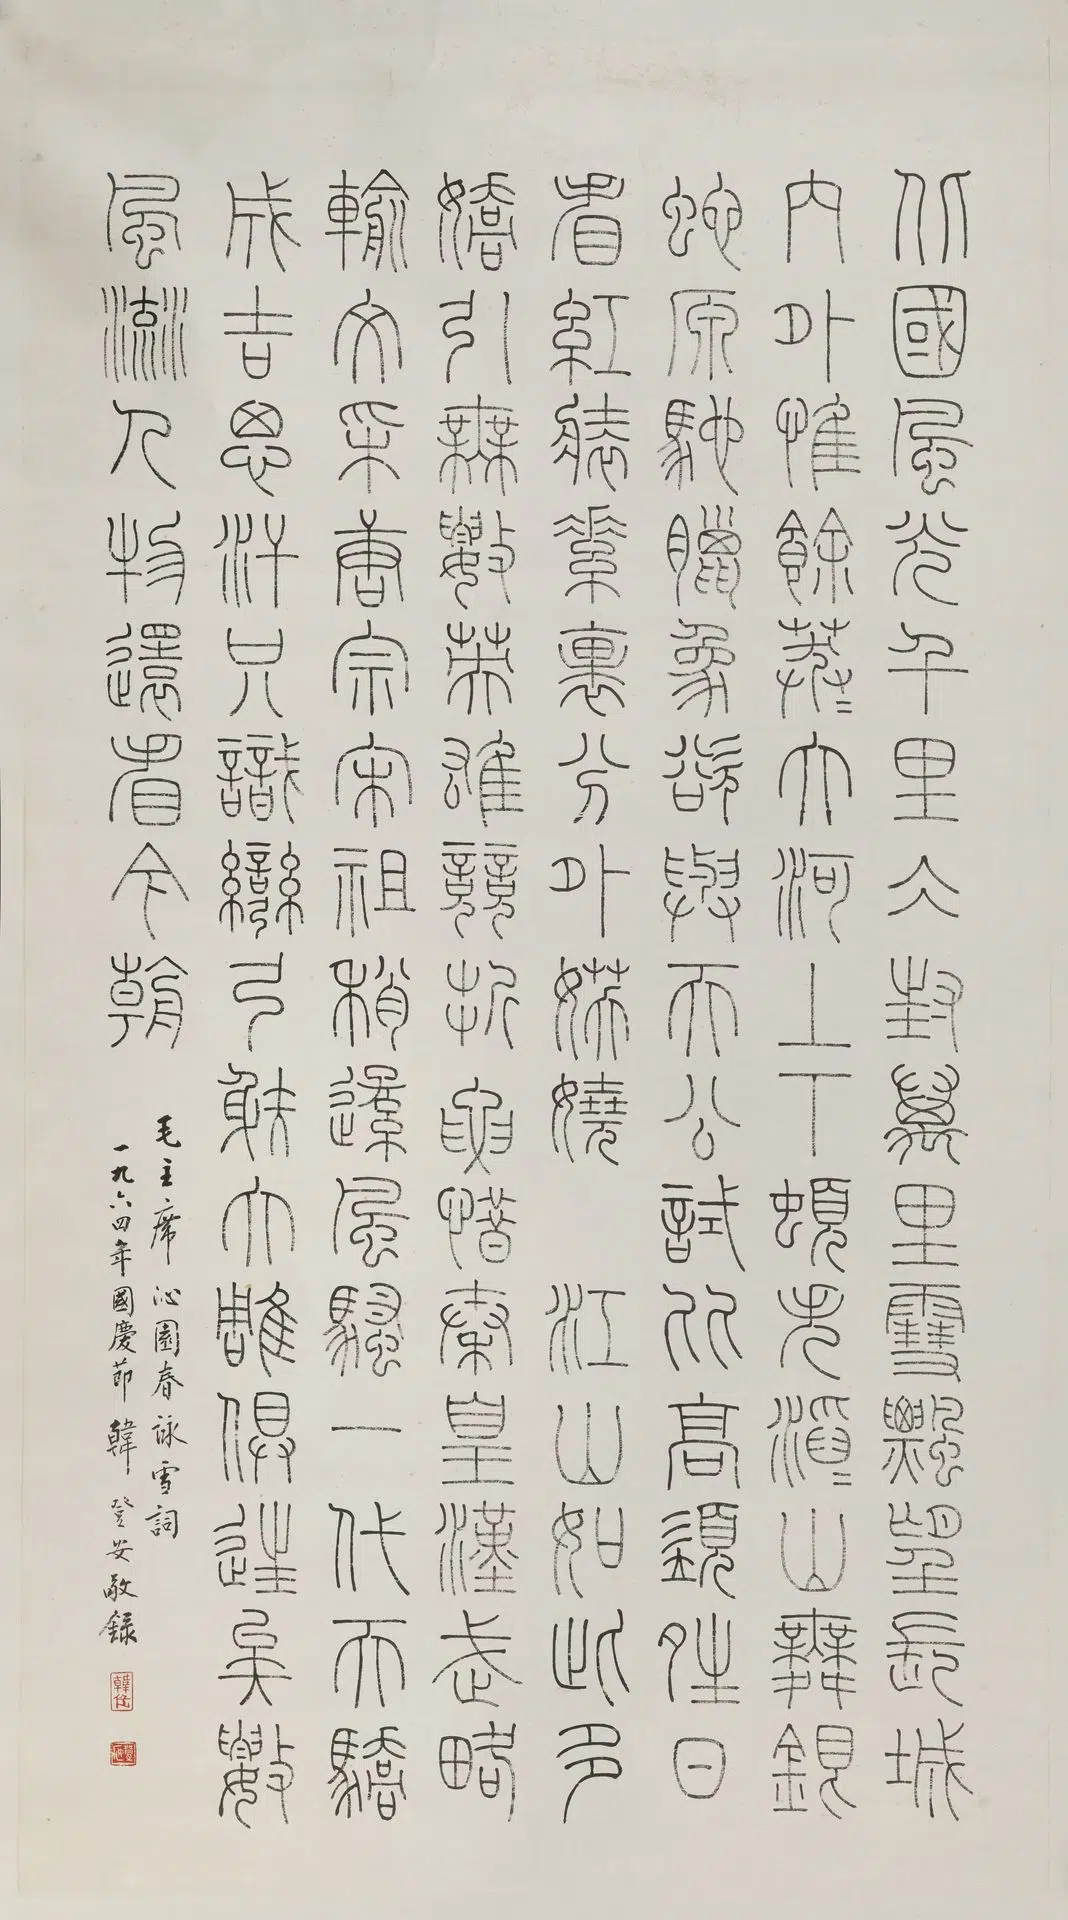 北國風光千里冰封萬里雪飄望長城
内外惟餘莽〻大河上下頓失滔〻山舞銀
蛇原馳臘象欲與天公試比高須晴日
看紅裝素裹分外妖嬈 江山如此多
嬌引無數英雄競折腰惜秦皇漢武略
輸文采唐宗宋祖稍遜風騷一代天驕
成吉思汗只識彎弓射大雕俱往矣數
風流人物還看今朝
毛主席沁園春詠雪詞
一九六四年國慶節韓登安敬録